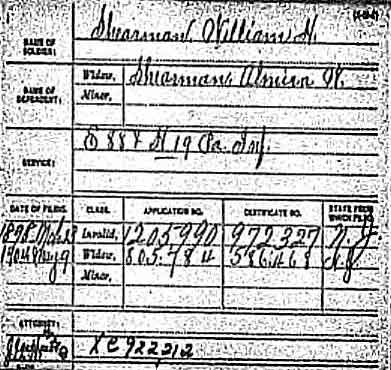 NAME OF SOLDIER: Shearman, William H.
NAME OF DEPENDENT: Widow, Shearman, Almira
Minor,
SERVICE: 19 Pa. Inf.
DATE OF FILING. CLASS. APPLICATION NO. CERTIFICATE NO. STATE FROM WHICH FILED.
1898 Invalid, 1205990 972327 N.J.
1904 Widow, 805784 586468 N.J.
Minor,
ATTORNEY:
XC 922212